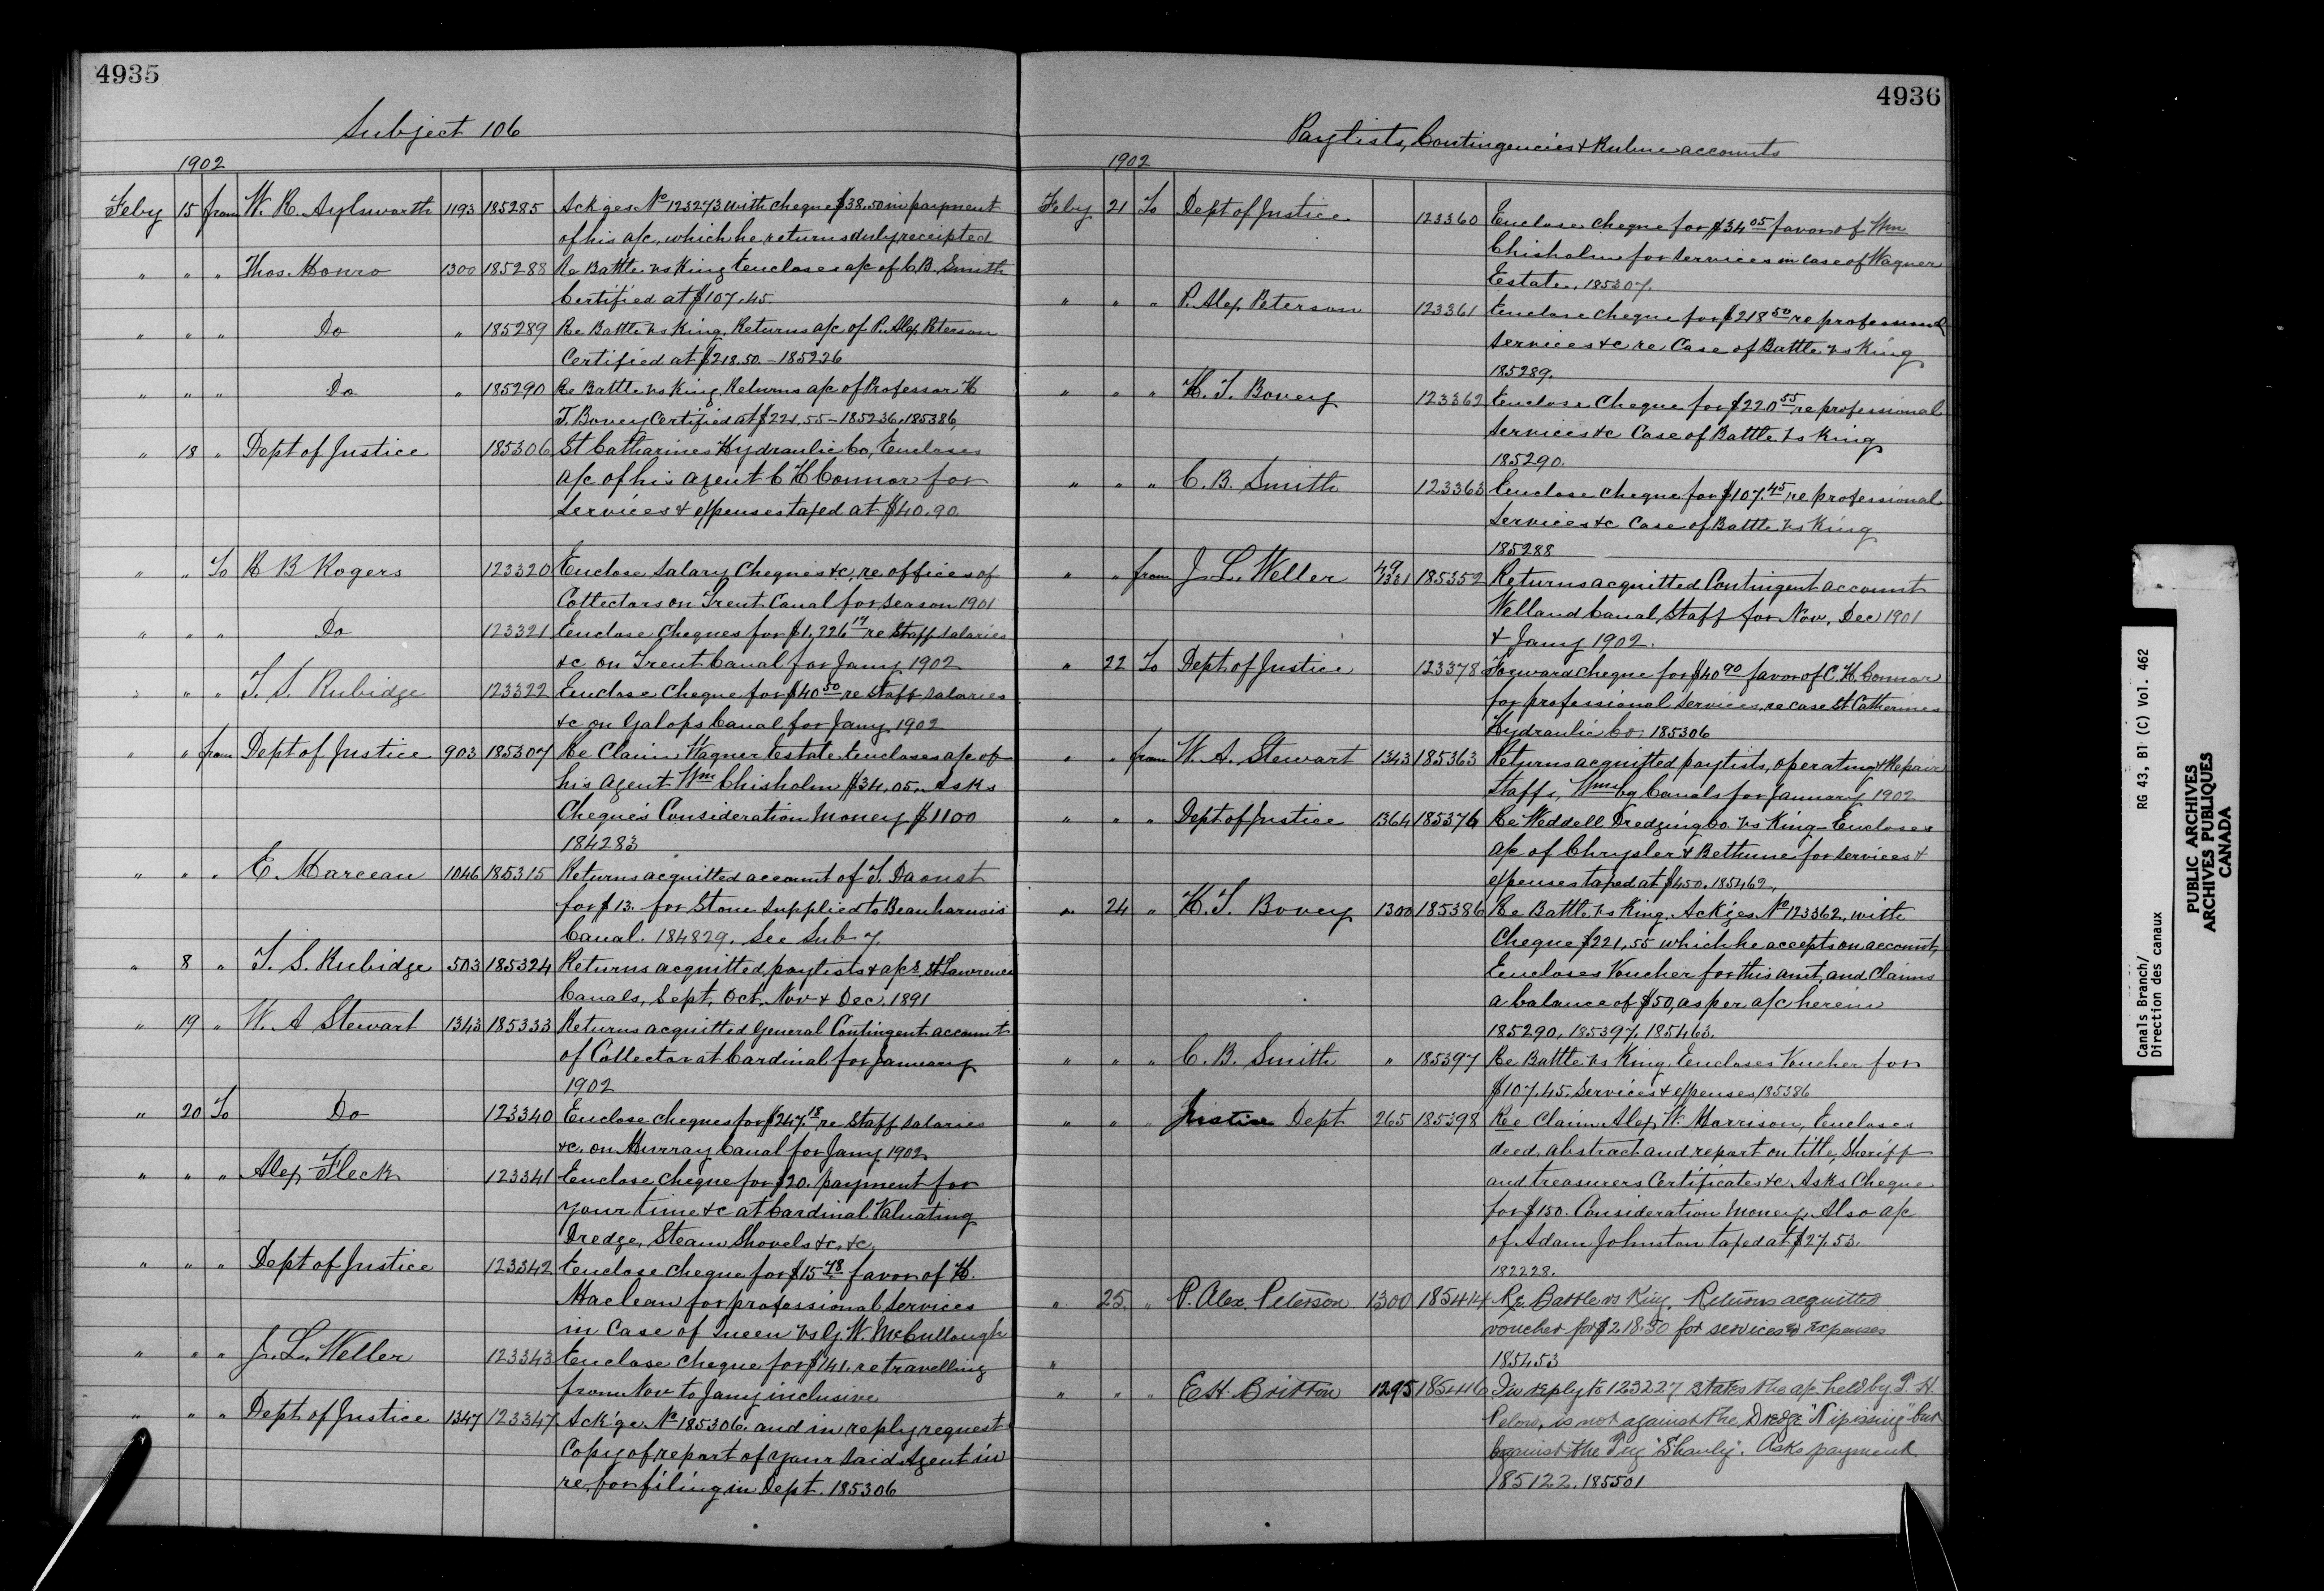 4935
Subject 106
1902
Feby 15 from W. R. Aylsworth 1193 185285 Ackges No 123273 with cheque $38.50 in payment
of his a/c, which he returns duly receipted
" " " Thos. Monro 1300 185288 Re Battle vs King Encloses a/c of C.B. Smith
Certified at $107.45
" " " Do " 185289 Re Battle vs King, Returns a/c of P. Alex Peterson
Certified at $218.50 - 185226
" " " Do " 185290 Re Battle vs King, Returns a/c of Professor H
T. Bovey Certified at $221.55 - 185236, 185386
" 18 " Dept of Justice 185306 St Catharines Hydraulic Co, Encloses
a/c of his agent C H Connor for
Services & expenses taxed at $40.90
" " To R B Rogers 123320 Enclose Salary Cheques &c, re offices of
Collectors on Trent Canal for season 1901
" " " Do 123321 Enclose Cheques for $1,226 17 re Staff salaries
&c on Trent Canal for Jany 1902
" " " T. S. Rubidge 123322 Enclose Cheque for $40 50 re Staff salaries
&c on Galops Canal for Jany 1902
" " from Dept of Justice 903 185307 Re Claim Wagner Estate, encloses a/c of
his agent Wm Chisholm $34.05. Asks
Cheque's Consideration Money $1100
184283
" " " E. Marceau 1046 185315 Returns acquitted account of T. Daoust
for $13. for Stone Supplied to Beauharnois
Canal. 184829. See Sub 7.
" 8 " T. S. Rubidge 503 185324 Returns acquitted paylists & a/cs, St Lawrence
Canals, Sept, Oct, Nov & Dec. 1891
" 19 " W. A Stewart 1343 185333 Returns acquitted General Contingent account
of Collector at Cardinal for January
1902
" 20 To Do 123340 Enclose cheques for $247.18 re Staff salaries
&c. on Murray Canal for Jany 1902
" " " Alex Fleck 123341 Enclose Cheque for $20. payment for
your time &c at Cardinal Valuating
Dredge, Steam Shovels &c. &c.
" " " Dept of Justice 123342 Enclose cheque for $15 78 favor of H.
Maclean for professional services
in case of Queen vs G. W. McCullough
" " " J. L. Weller 123343 Enclose cheque for $141. re travelling
from Nov to Jany inclusive
" " " Dept of Justice 1347 123347 Ack'ge No 185306. and in reply request
Copy of report of your said Agent in
re, for filing in Dept. 185306
4936
Paylists, Contingencies & Rubric accounts
1902
Feby 21 To Dept of Justice 123360 Enclose Cheque for $34 05 favor of Wm
Chisholm for services in case of Wagner
Estate. 185307.
" " " P. Alex. Peterson 123361 Enclose cheque for $218 50 re professional
Services &c re Case of Battle vs King
185289.
" " " H. T. Bovey 123362 Enclose Cheque for $220 55 re professional
Services &c Case of Battle vs King
185290.
" " " C. B. Smith 123363 Enclose cheque for $107.45 re professional
Services &c Case of Battle vs King
185288
" " from J. L. Weller 49/1331 185352 Returns acquitted Contingent account
Welland Canal, Staff for Nov, Dec 1901
& Jany 1902.
" 22 To Dept. of Justice 123378 Forward cheque for $40 90 favor of C. H. Connor
for professional services, re case St Catherines
Hydraulic Co. 185306
" " from W. A. Stewart 1343 185363 Returns acquitted paylists, operating & Repair
Staffs, Wmsbg Canals for January 1902
" " " Dept of Justice 1364 185376 Re Weddell Dredging Co. vs King - Encloses
a/c of Chrysler & Bethune for services &
expenses taxed at $450. 185462.
" 24 " H. T. Bovey 1300 185386 Re Battle vs King. Ack'ges No 123362, with
Cheque $221.55 which he accepts on account,
Encloses Voucher for this amt, and Claims
a balance of $50, as per a/c herein
185290, 185397, 185463.
" " " C. B. Smith " 185397 Re Battle vs King. Encloses Voucher for
$107.45. Services & expenses, 185386
" " " Justice Dept 265 185398 Re Claim Alex W. Morrison, Encloses
deed, abstract and report on title, Sheriff
and treasurers Certificates &c Asks Cheque
for $150. Consideration Money. Also a/c
of Adam Johnston taxed at $27.53.
182228.
" 25 " P. Alex Peterson 1300 185414 Re Battle vs King. Returns acquitted
voucher for $218.50 for services & expenses
185453
"
" " " E.H. Britton 1295 185416 In reply to 123227 states the a/c held by T. H.
is not against the Dredge "Nipissing" but
against the Tug "Shanly". Asks payment
185122. 185501
Canals Branch/
Direction des canaux
RG 43, B1 (C) Vol. 462
PUBLIC ARCHIVES
ARCHIVES PUBLIQUES
CANADA